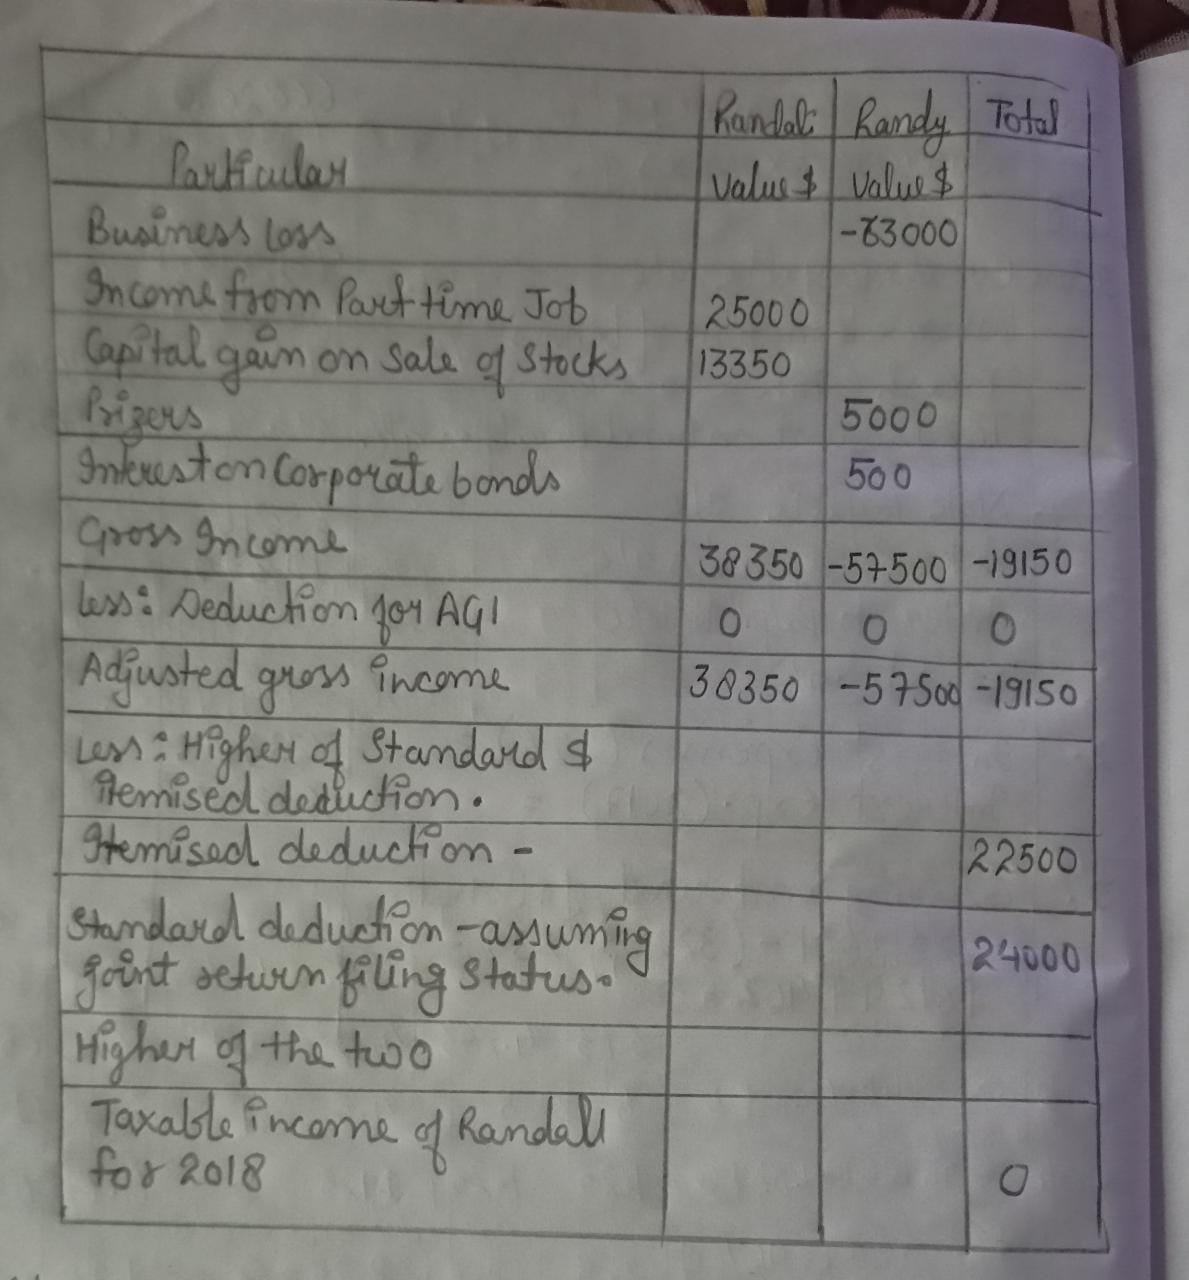 Randall Randy Total
Particular Value $ Value $
Business Loss -63000
Income from Part time Job 25000
Capital gain on Sale of Stocks 13350
Prizers 5000
Interest on Corporate bonds 500
Gross Income 38350 -57500 -19150
Less: Deduction for AGI 0 0 0
Adjusted gross income 38350 -57500 -19150
Less: Higher of Standard $
itemised deduction.
Itemised deduction - 22500
Standard deduction - assuming
joint return filing Status. 24000
Higher of the two
Taxable income of Randall
for 2018 0